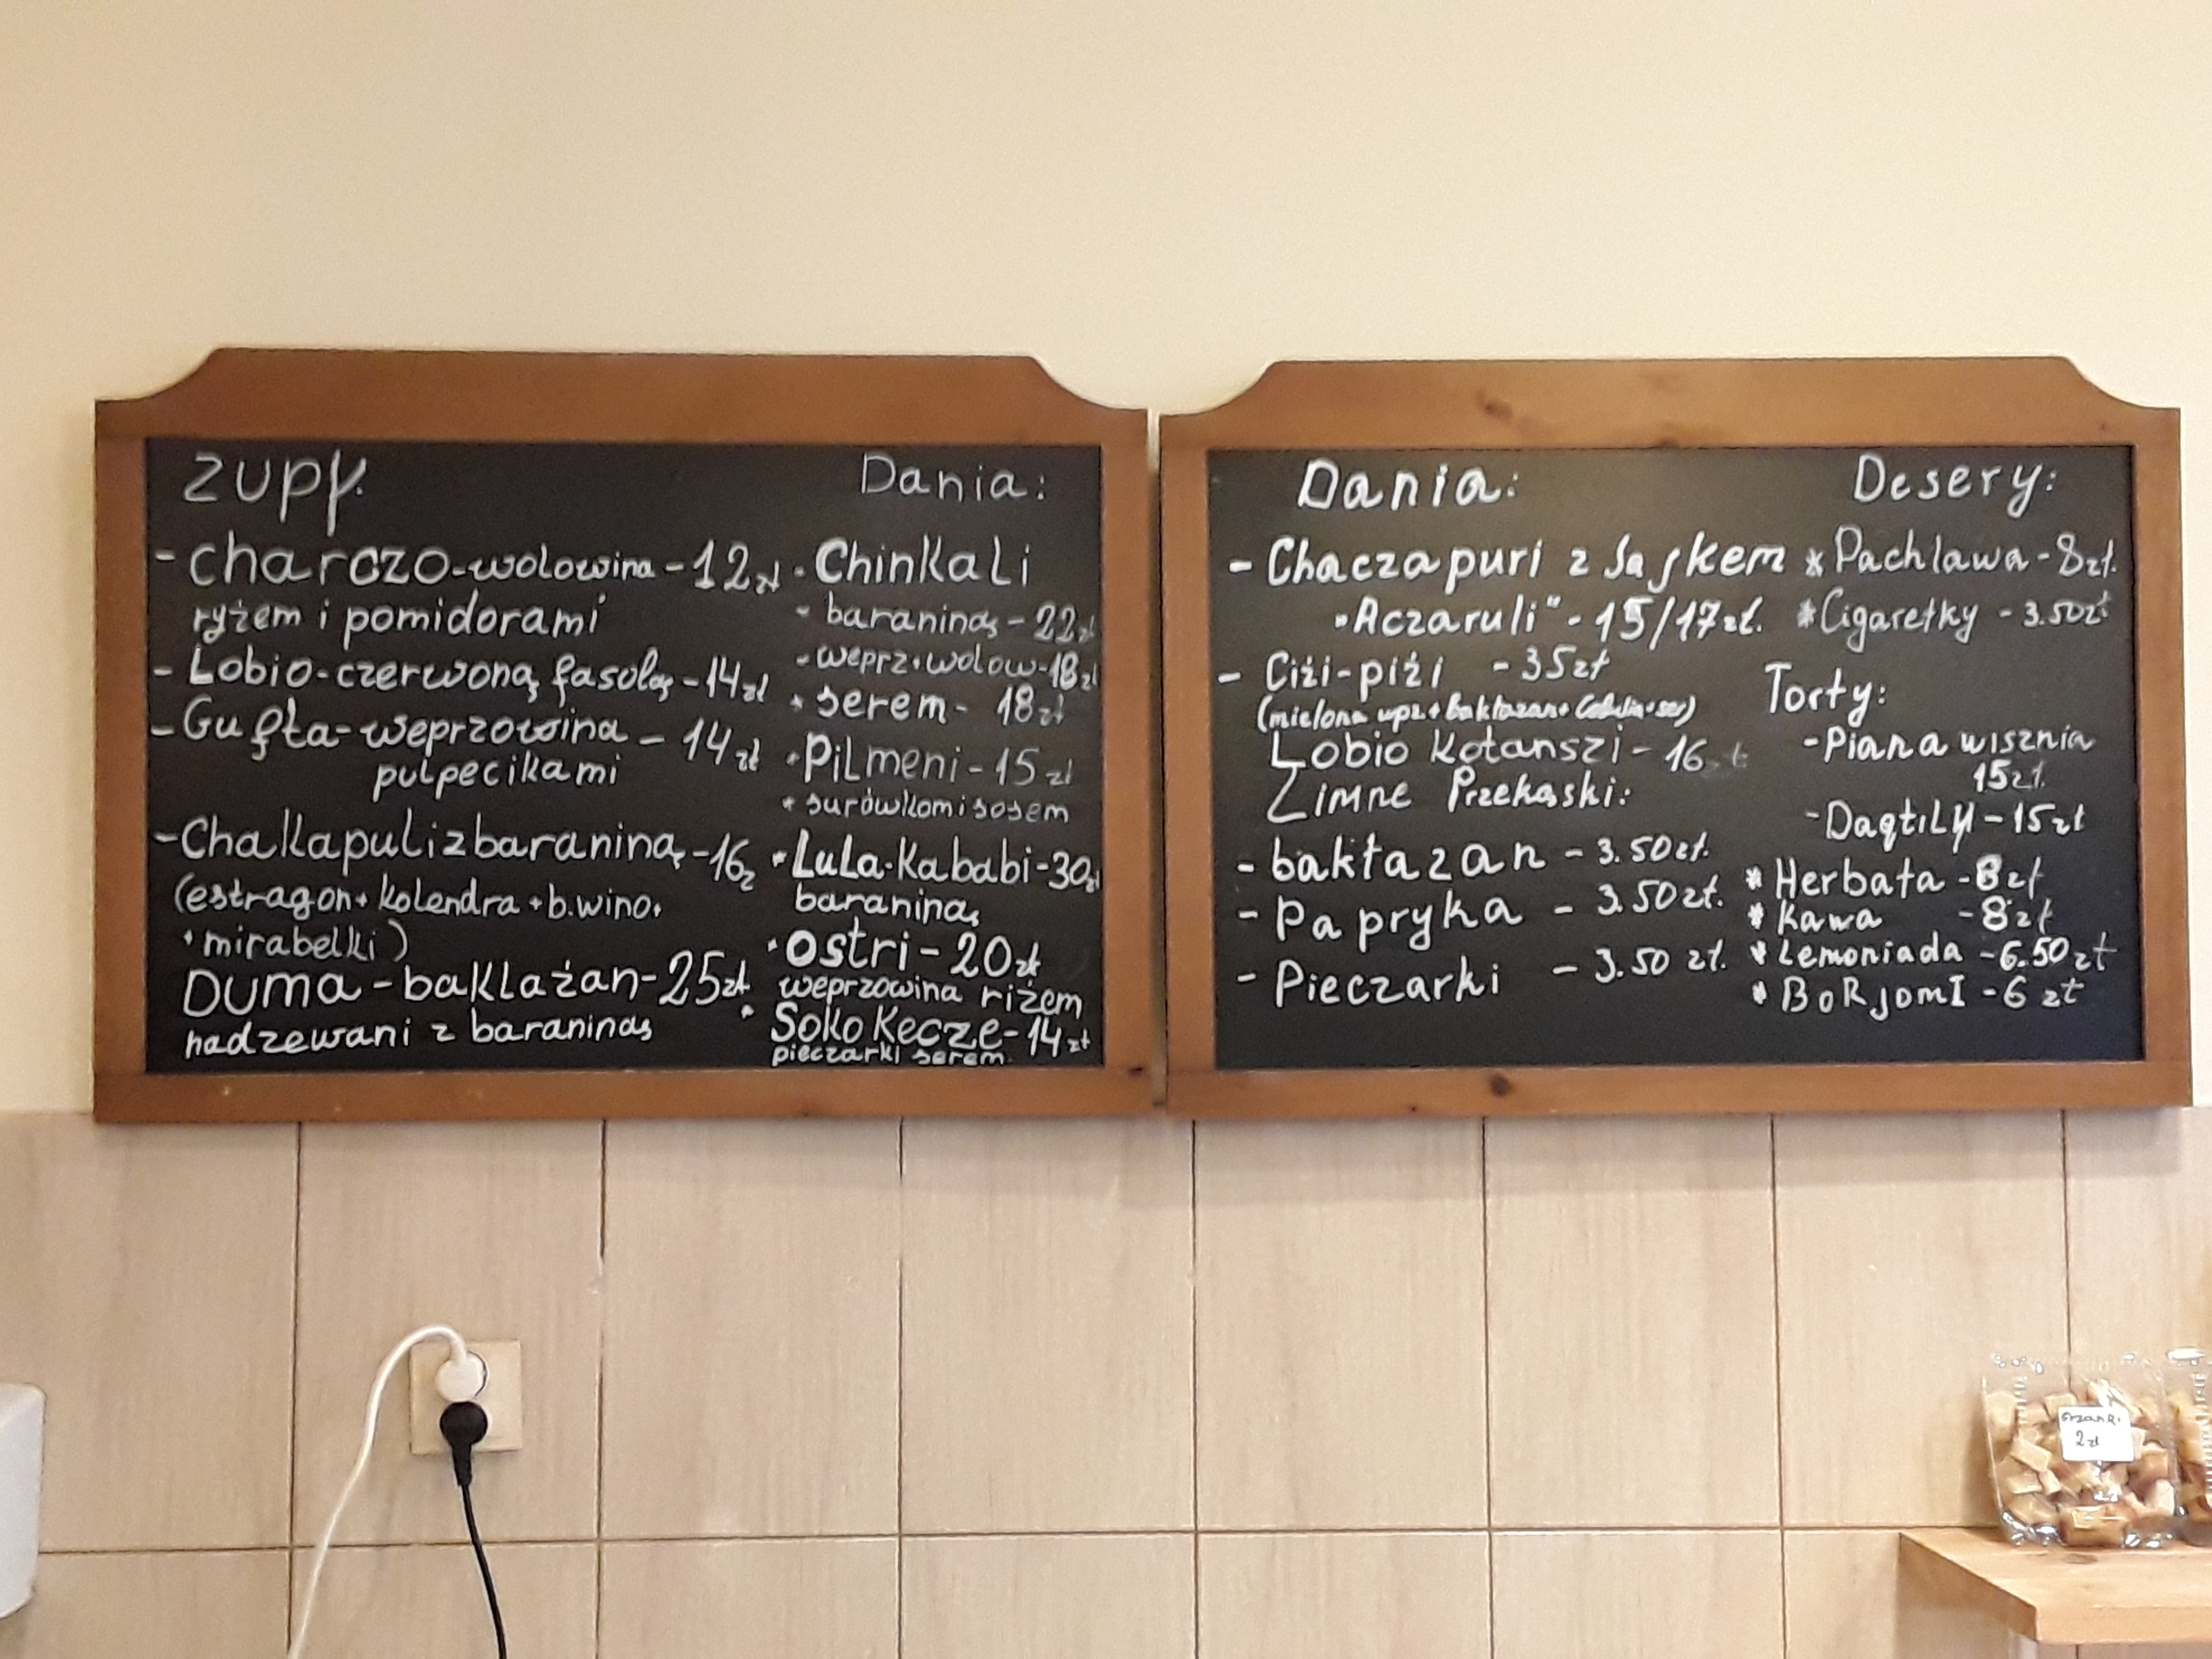 Zupy.
- Charczo - wolowina - 12zł
ryżem i pomidorami
- Lobio - czerwoną fasolą - 14zł
- Gufta - weprzowina - 14zł
pulpecikami
- Chakapuli z baraniną - 16z
(estragon + kolendra + b.wino +
+ mirabelki)
Duma - baklażan - 25zł
nadzewani z baraniną
Dania:
• Chinkali
- baraniną - 22zł
- weprz + wolow - 18zł
• serem - 18zł
• Pilmeni - 15zł
• surówkom i sosem
• Lula-Kababi - 30zł
baraniną
• Ostri - 20zł
weprzowina riżem
• Soko Kecze - 14zł
pieczarki serem
Dania:
- Chaczapuri z
"Aczaruli" - 15/17zł.
- Ciżi-piżi - 35zł
(mielona wpz + bakłazan + + ser)
Lobio Kotanszi - 16 zł
Zimne Przekąski:
- bakłazan - 3.50zł.
- Papryka - 3.50zł.
- Pieczarki - 3.50 zł.
Desery:
* Pachlawa - 8zł.
* Cigaretky - 3.50zł
Torty:
- Piana wisznia
15zł.
- Daqtily - 15zł
* Herbata - 8zł
* Kawa - 8zł
* Lemoniada - 6.50zł
* BoRjomI - 6 zł
Grzanki
2zł